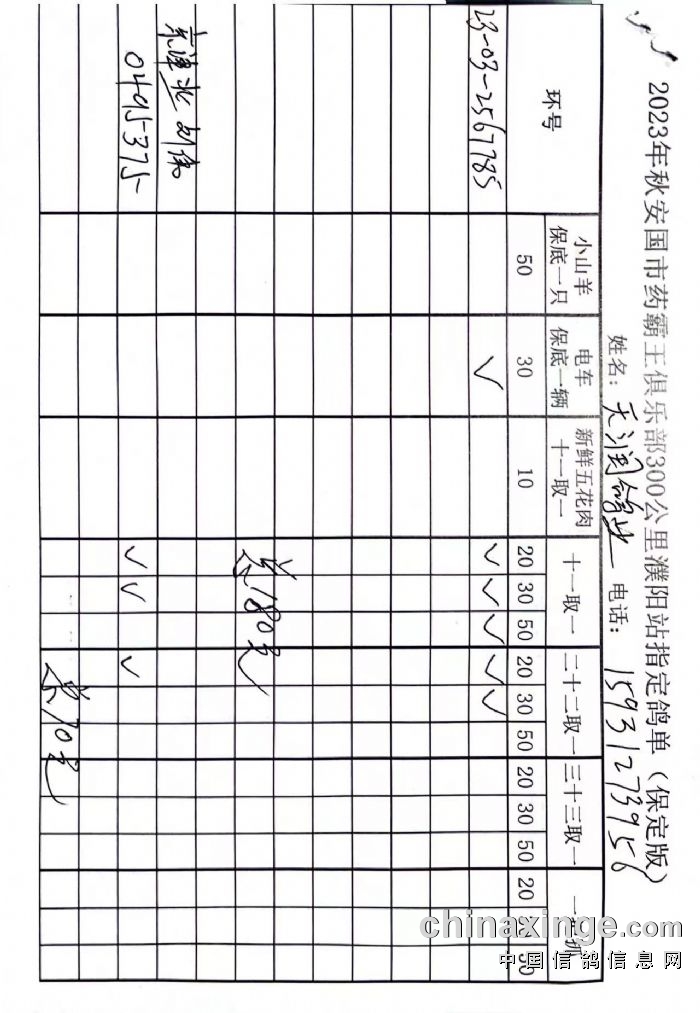 2023年秋安国市药霸王俱乐部300公里濮阳站指定鸽单（保定版）
姓名：天润鸽业 电话：15931273956
环号 小山羊 保底一只 电车 保底一辆 新鲜五花肉 十一取一 十一取一 二十二取一 三十三取一
50 30 10 20 30 50 20 30 50 20 30 50 20 30 50
23-03-2567785 ✓ ✓ ✓ ✓ ✓ ✓
共180元
京津北 刘伟
0495375 ✓ ✓ ✓
共70元
chinaxinge.com
中国信鸽信息网